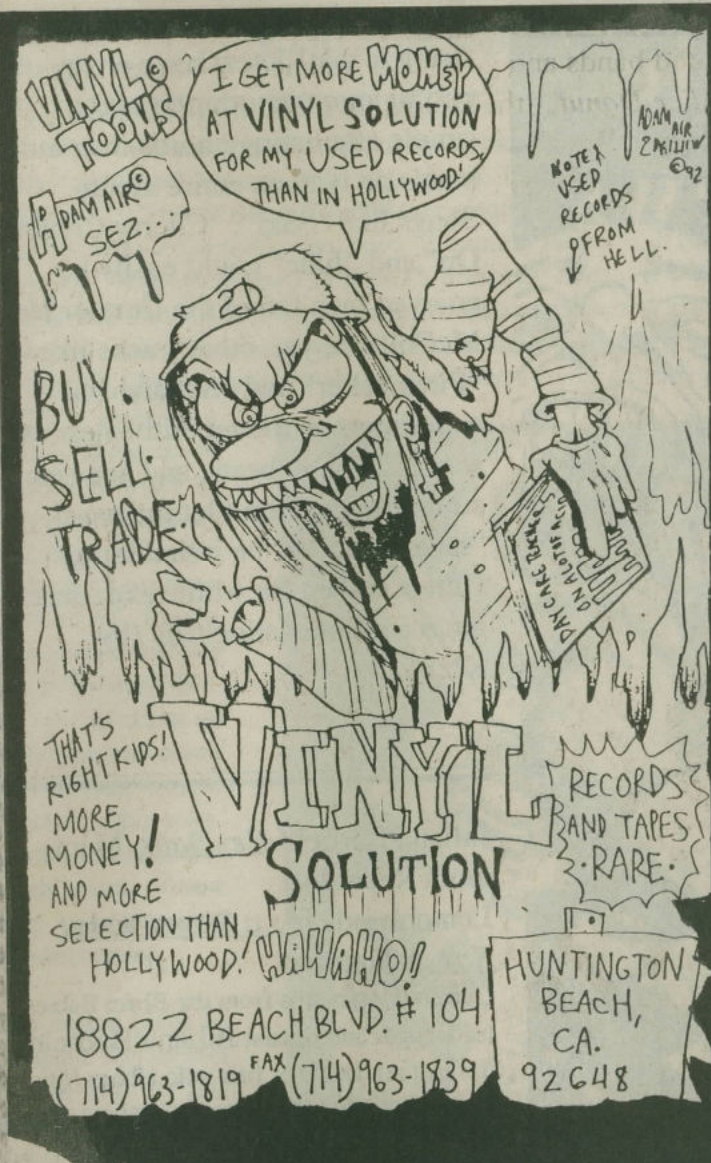 VINYL ©
TOONS
ADAM AIR©
SEZ...
I GET MORE MONEY
AT VINYL SOLUTION
FOR MY USED RECORDS,
THAN IN HOLLYWOOD!
ADAM
AIR
©92
NOTE
USED
RECORDS
FROM
HELL.
2D
BUY.
SELL.
TRADE
DAY CARE TEACHERS
THAT'S
RIGHT KIDS!
MORE
MONEY!
AND MORE
SELECTION THAN
HOLLYWOOD!
HAHAHO!
VINYL
SOLUTION
RECORDS
AND TAPES
·RARE·
18822 BEACH BLVD. # 104
(714)963-1819 FAX (714)963-1839
HUNTINGTON
BEACH,
CA.
92648